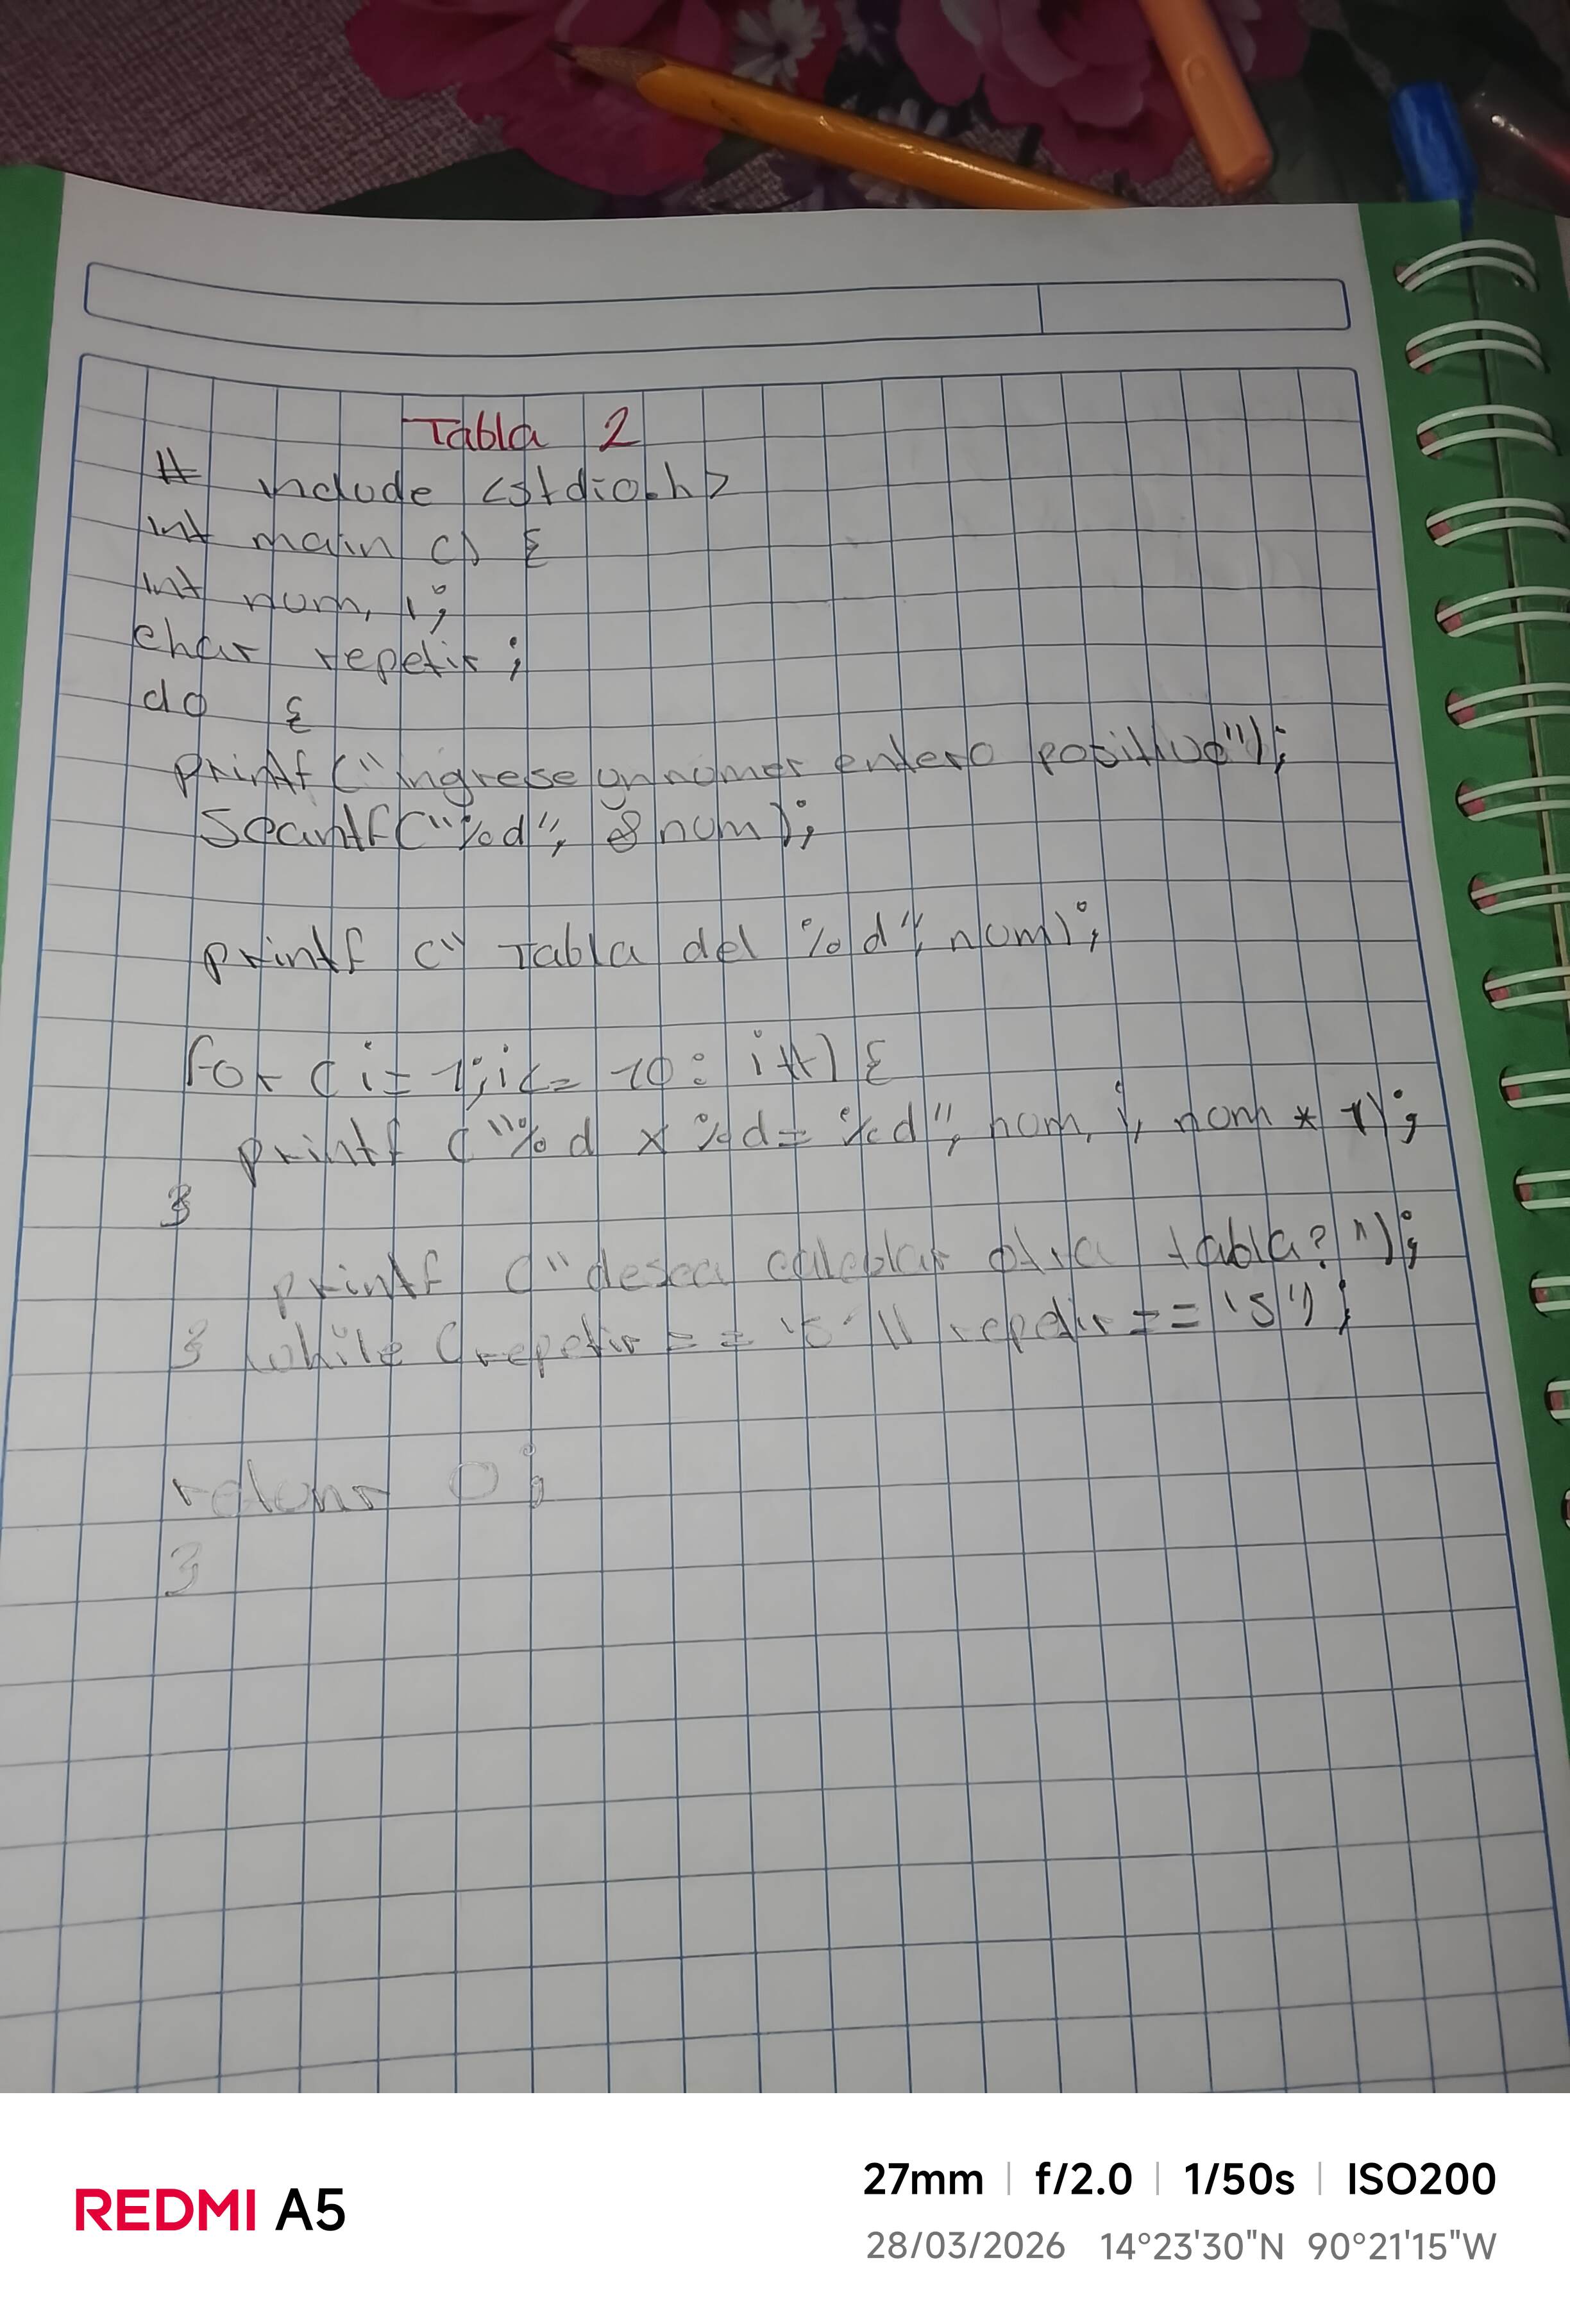 Tabla 2
# include <stdio.h>
int main () {
int num, i;
char repetir ;
do {
printf ("ingrese un numer entero positivo");
Scantf("%d", &num);
printf (" Tabla del %d", num);
for ( i = 1; i <= 10 : i++) {
printf ("%d x %d = %d", num, i, num * i) ;
}
printf ("desea calcular otra tabla? ");
} while (repetir == 's' || repetir == 'S') ;
retonr 0 ;
}
REDMI A5
27mm | f/2.0 | 1/50s | ISO200
28/03/2026 14°23'30"N 90°21'15"W